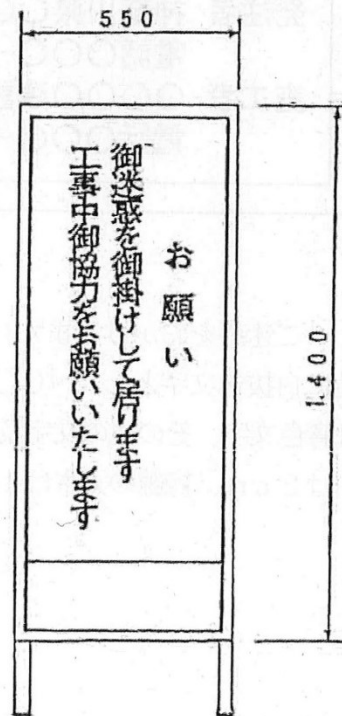 550
お願い
御迷惑を御掛けして居ります
工事中御協力をお願いいたします
1.400